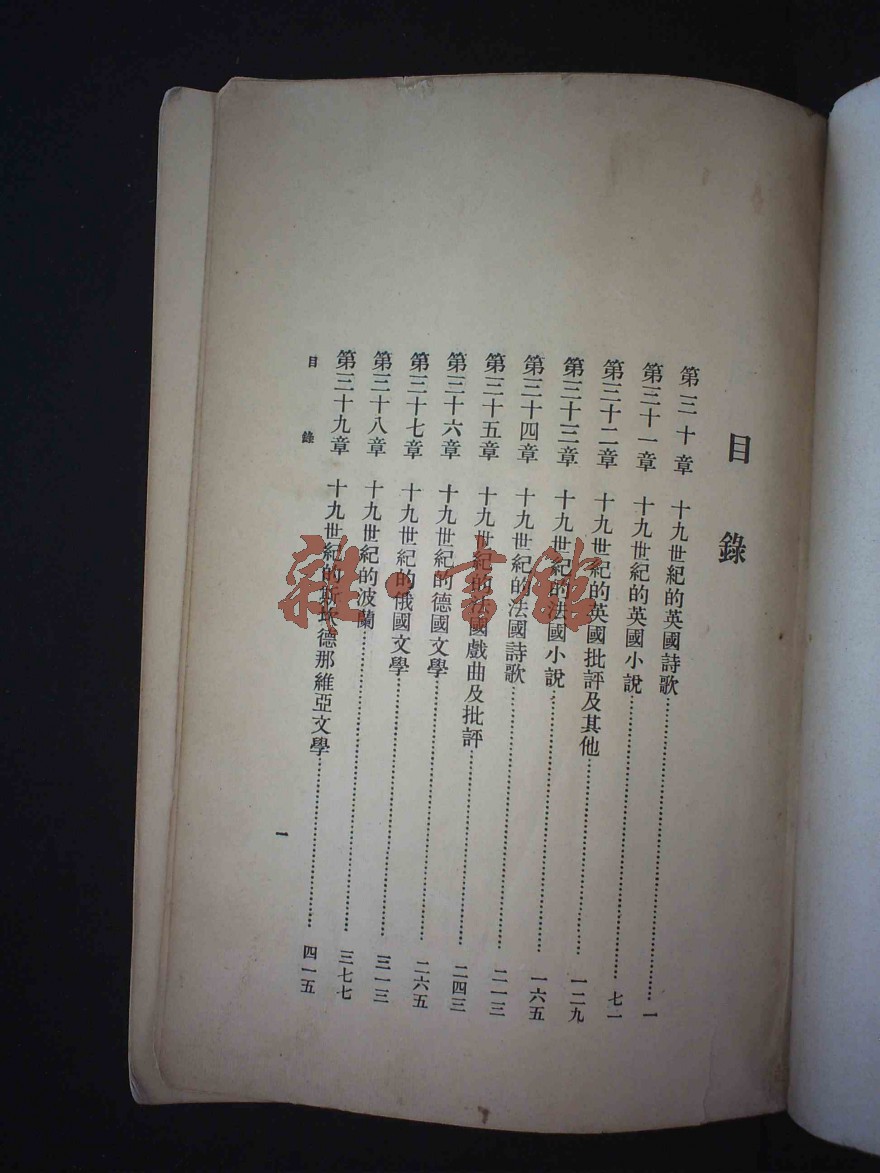 目錄
第三十章 十九世紀的英國詩歌……一
第三十一章 十九世紀的英國小說……七一
第三十二章 十九世紀的英國批評及其他……一二九
第三十三章 十九世紀的法國小說……一六五
第三十四章 十九世紀的法國詩歌……二一三
第三十五章 十九世紀的法國戲曲及批評……二四三
第三十六章 十九世紀的德國文學……二六五
第三十七章 十九世紀的俄國文學……三一三
第三十八章 十九世紀的波蘭……三七七
第三十九章 十九世紀的斯坎德那維亞文學……四一五
目錄
一
雜·書館